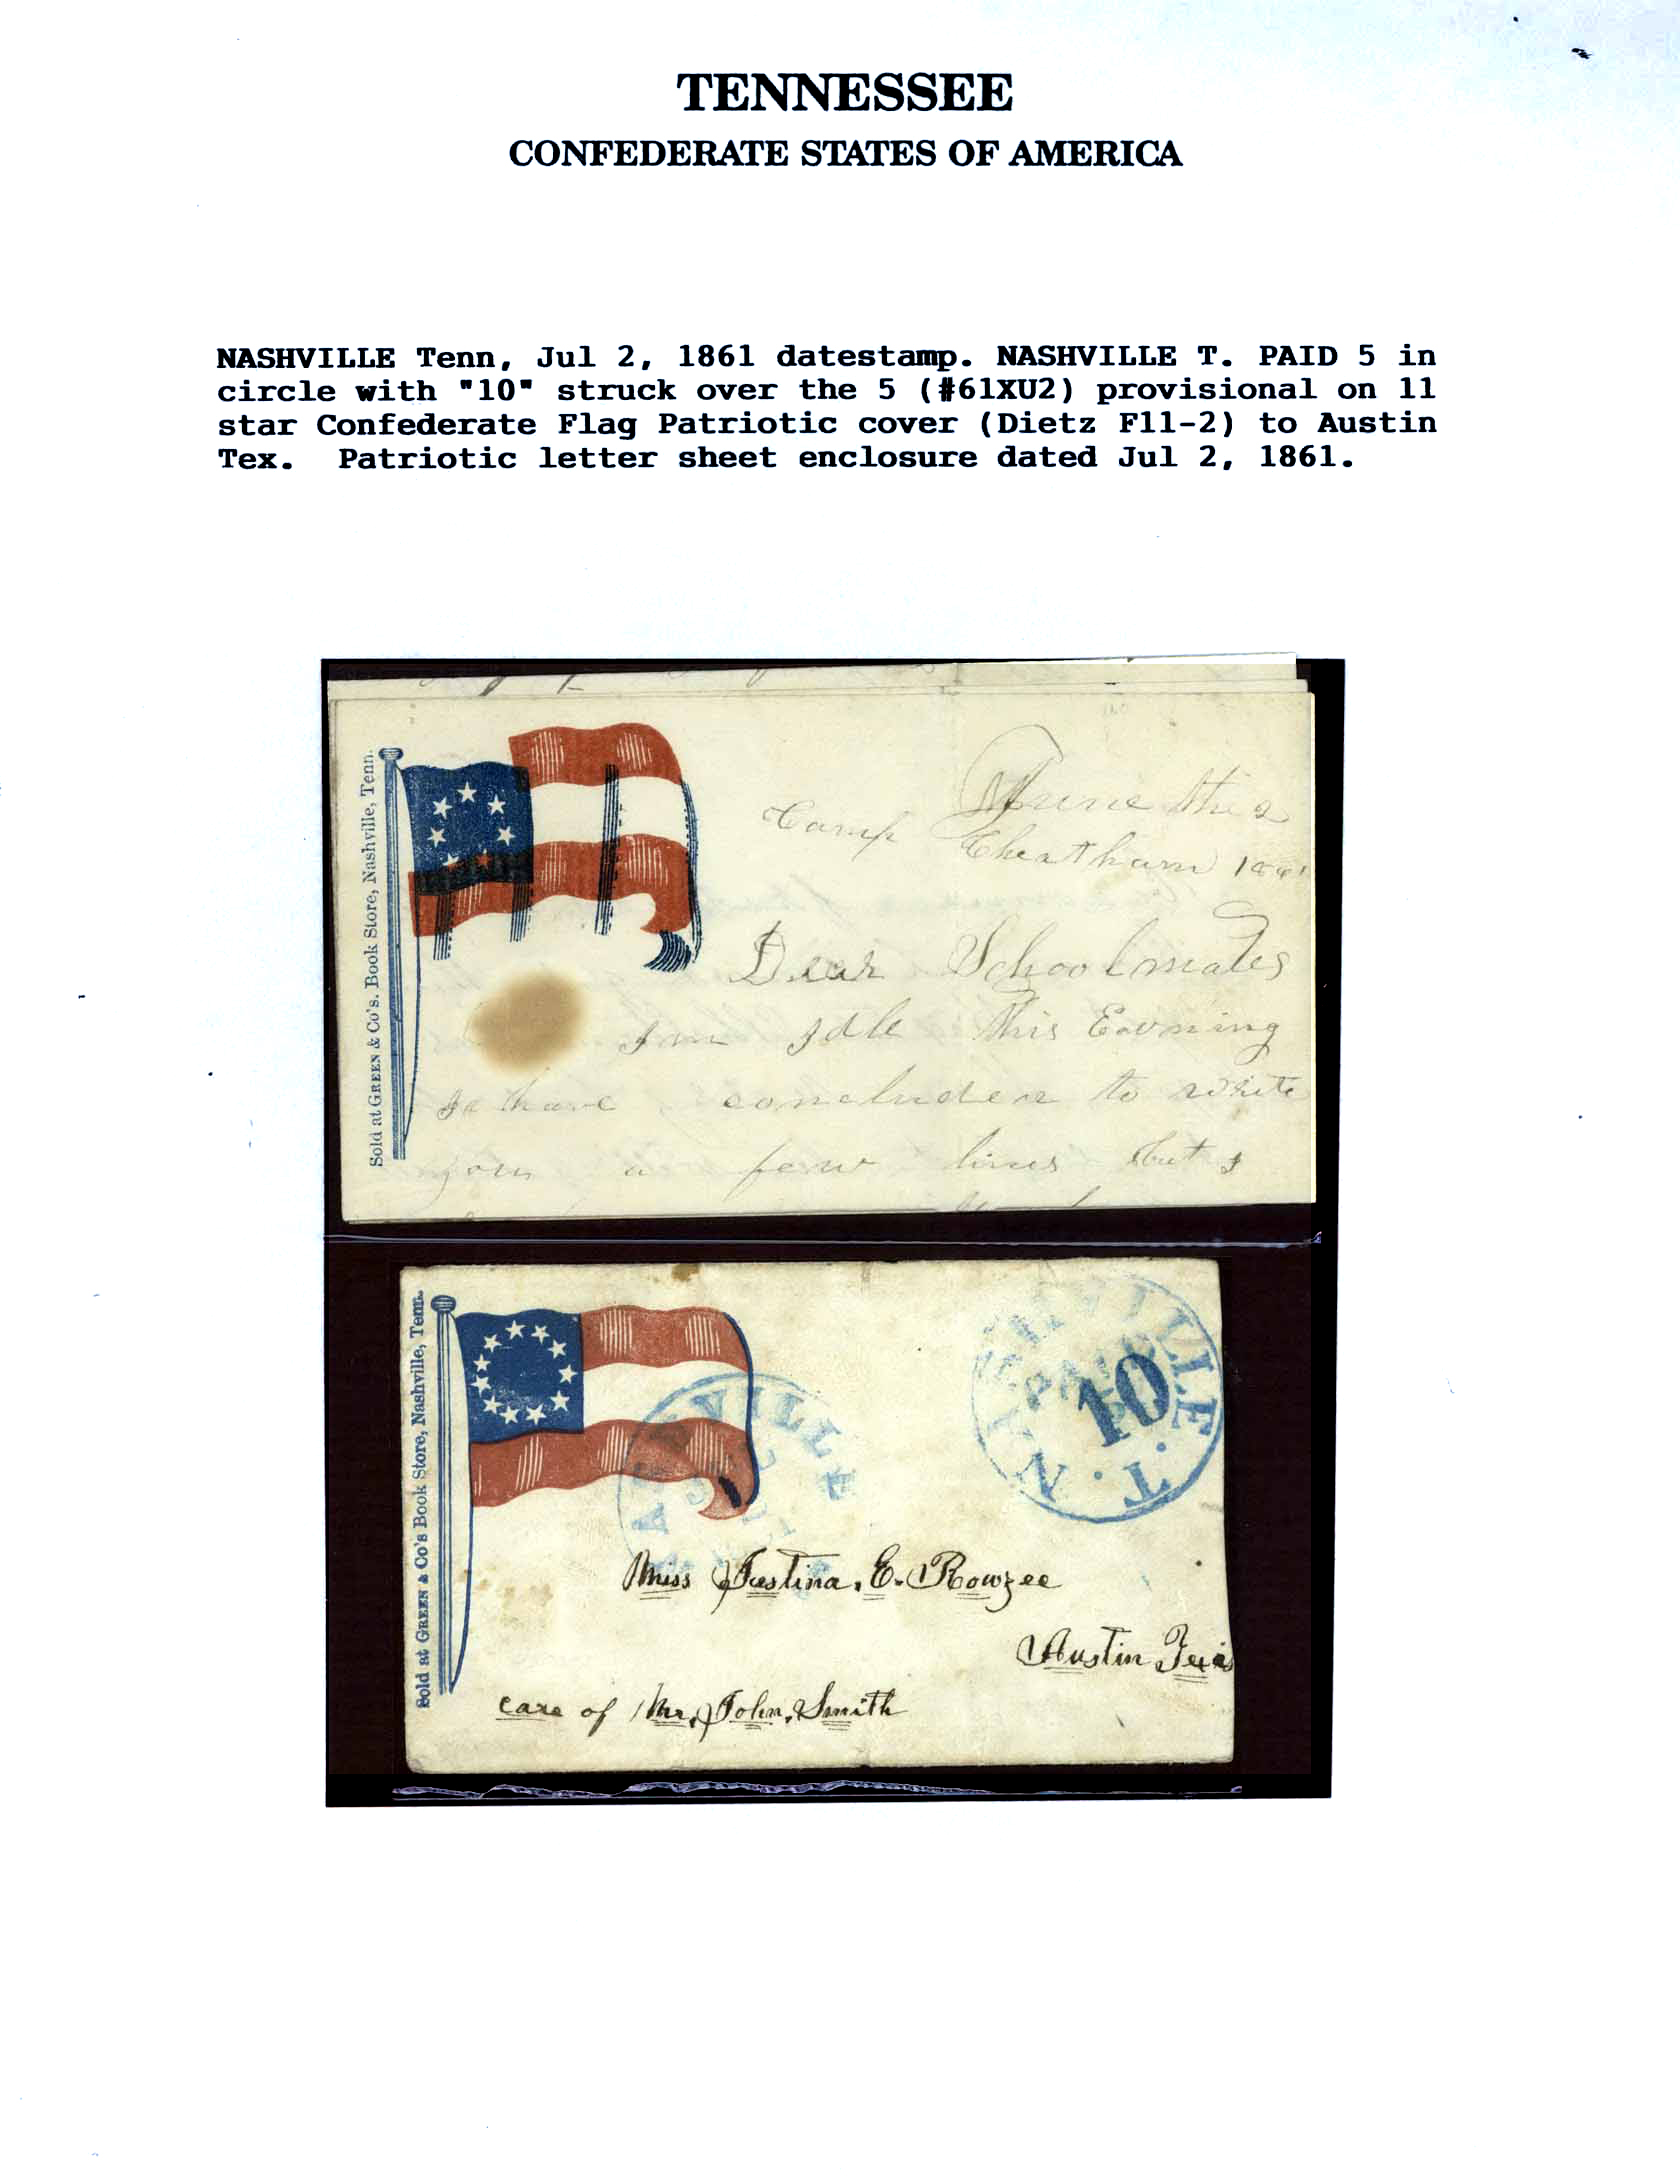 TENNESSEE
CONFEDERATE STATES OF AMERICA
NASHVILLE Tenn, Jul 2, 1861 datestamp. NASHVILLE T. PAID 5 in
circle with "10" struck over the 5 (#61XU2) provisional on 11
star Confederate Flag Patriotic cover (Dietz F11-2) to Austin
Tex. Patriotic letter sheet enclosure dated Jul 2, 1861.
Sold at GREEN & Co's. Book Store, Nashville, Tenn.
June this 2
Camp Cheatham 1861
Dear Schoolmates
I am Idle this Eavning
have concluded to write
you a few lines but I
Sold at GREEN & Co's Book Store, Nashville, Tenn.
NASHVILLE T.
PAID
10
Miss Justina. E. Rowzee
Austin Texas
care of Mr, John, Smith